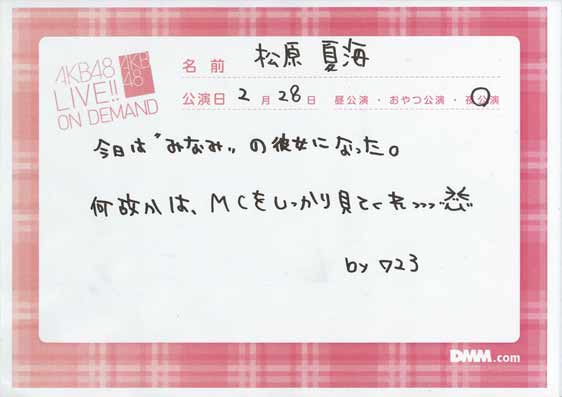 AKB48
LIVE!!
ON DEMAND
AKB
48
名前 松原 夏海
公演日 2月28日 昼公演・おやつ公演・夜公演
今日は"みなみ"の彼女になった。
何故かは、MCをしっかり見てくれ
by 723
DMM.com